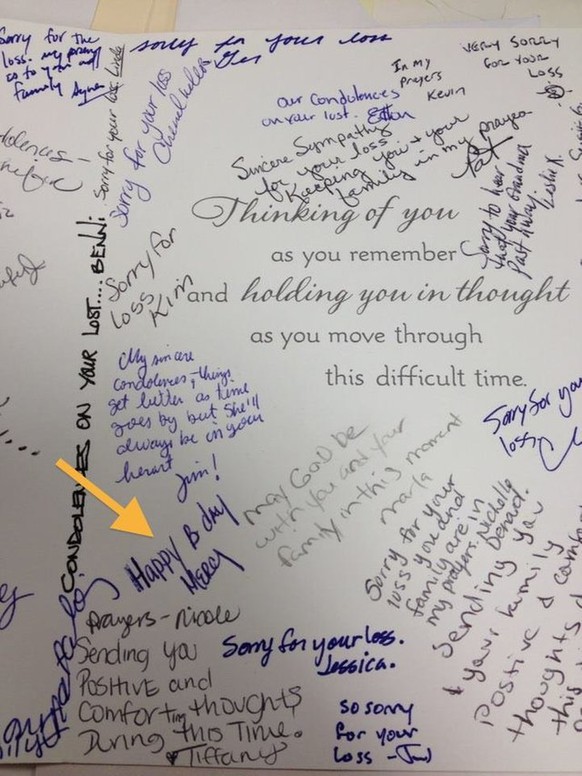 Sorry for the
loss. my prayers
family
Sorry for your loss. Linda
sorry for your loss
Sorry for your loss
our Condolences
on your lost.
In my
prayers
Kevin
VERY SORRY
FOR YOUR
LOSS
Sincere Sympathy
for your loss
Keeping you & your
family in my prayers
Pat
Sorry to hear
that your Grandma
Past Away
Thinking of you
as you remember
and holding you in thought
as you move through
this difficult time.
CONDOLENCES ON YOUR LOST.... BENNI
Sorry for
loss
Kim
My sincere
condolences, things
get better as time
goes by but she'll
always be in your
heart
Jim!
Happy B day
Mercy
May God be
with you and your
family in this moment
Marla
Sorry for your
loss
Sorry for your
loss you and
family are in
my prayer. Nichelle
Sending you
& your family
positive &
thoughts
this
Prayers - Nicole
Sending you
POSITIVE and
Comforting thoughts
During this Time.
♥Tiffany
Sorry for your loss.
Jessica.
so sorry
for your
loss